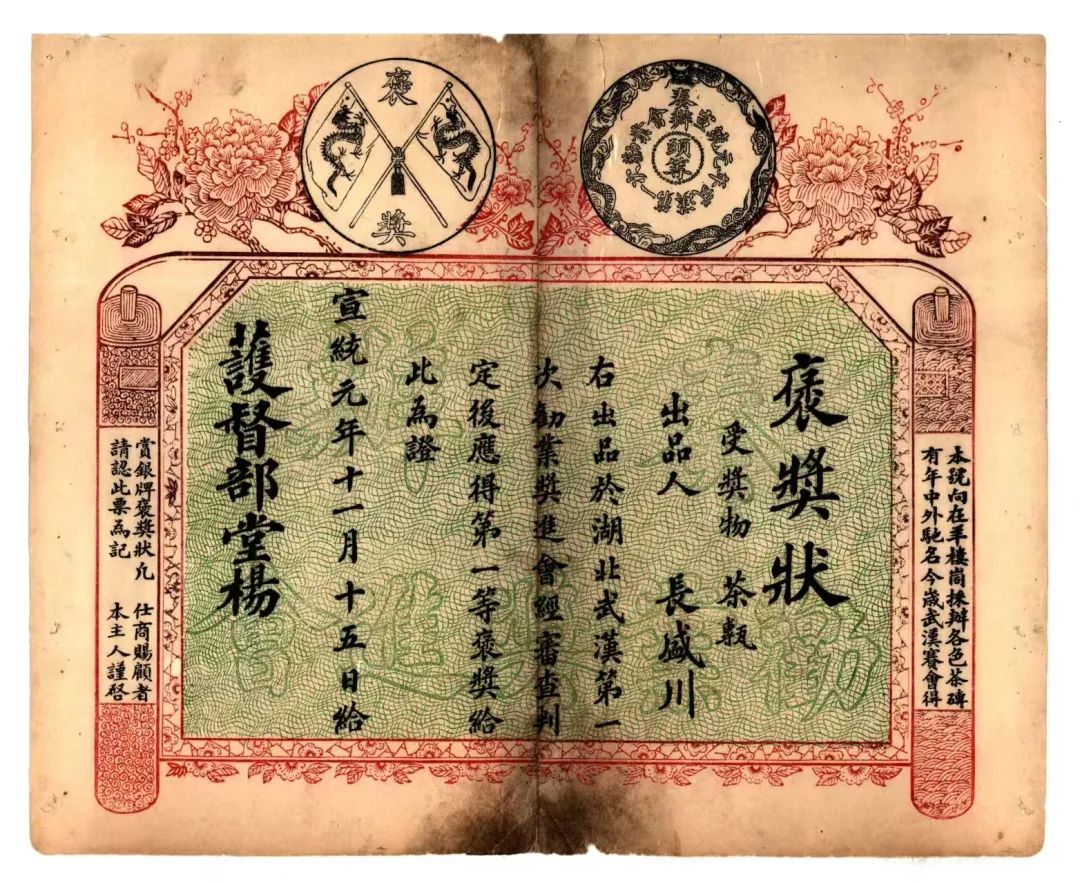 褒獎
奏辦
頭等
褒獎狀
受獎物 茶
出品人 長盛川
右出品於湖北武漢第一
次勸業獎進會經審查判
定後應得第一等褒獎給
此為證
宣統元年十一月十五日給
護督部堂楊
本號向在羊樓崗採辦各色茶磚
有年中外馳名今歲武漢賽會得
賞銀牌褒獎狀凡 仕商賜顧者
請認此票為記 本主人謹啓